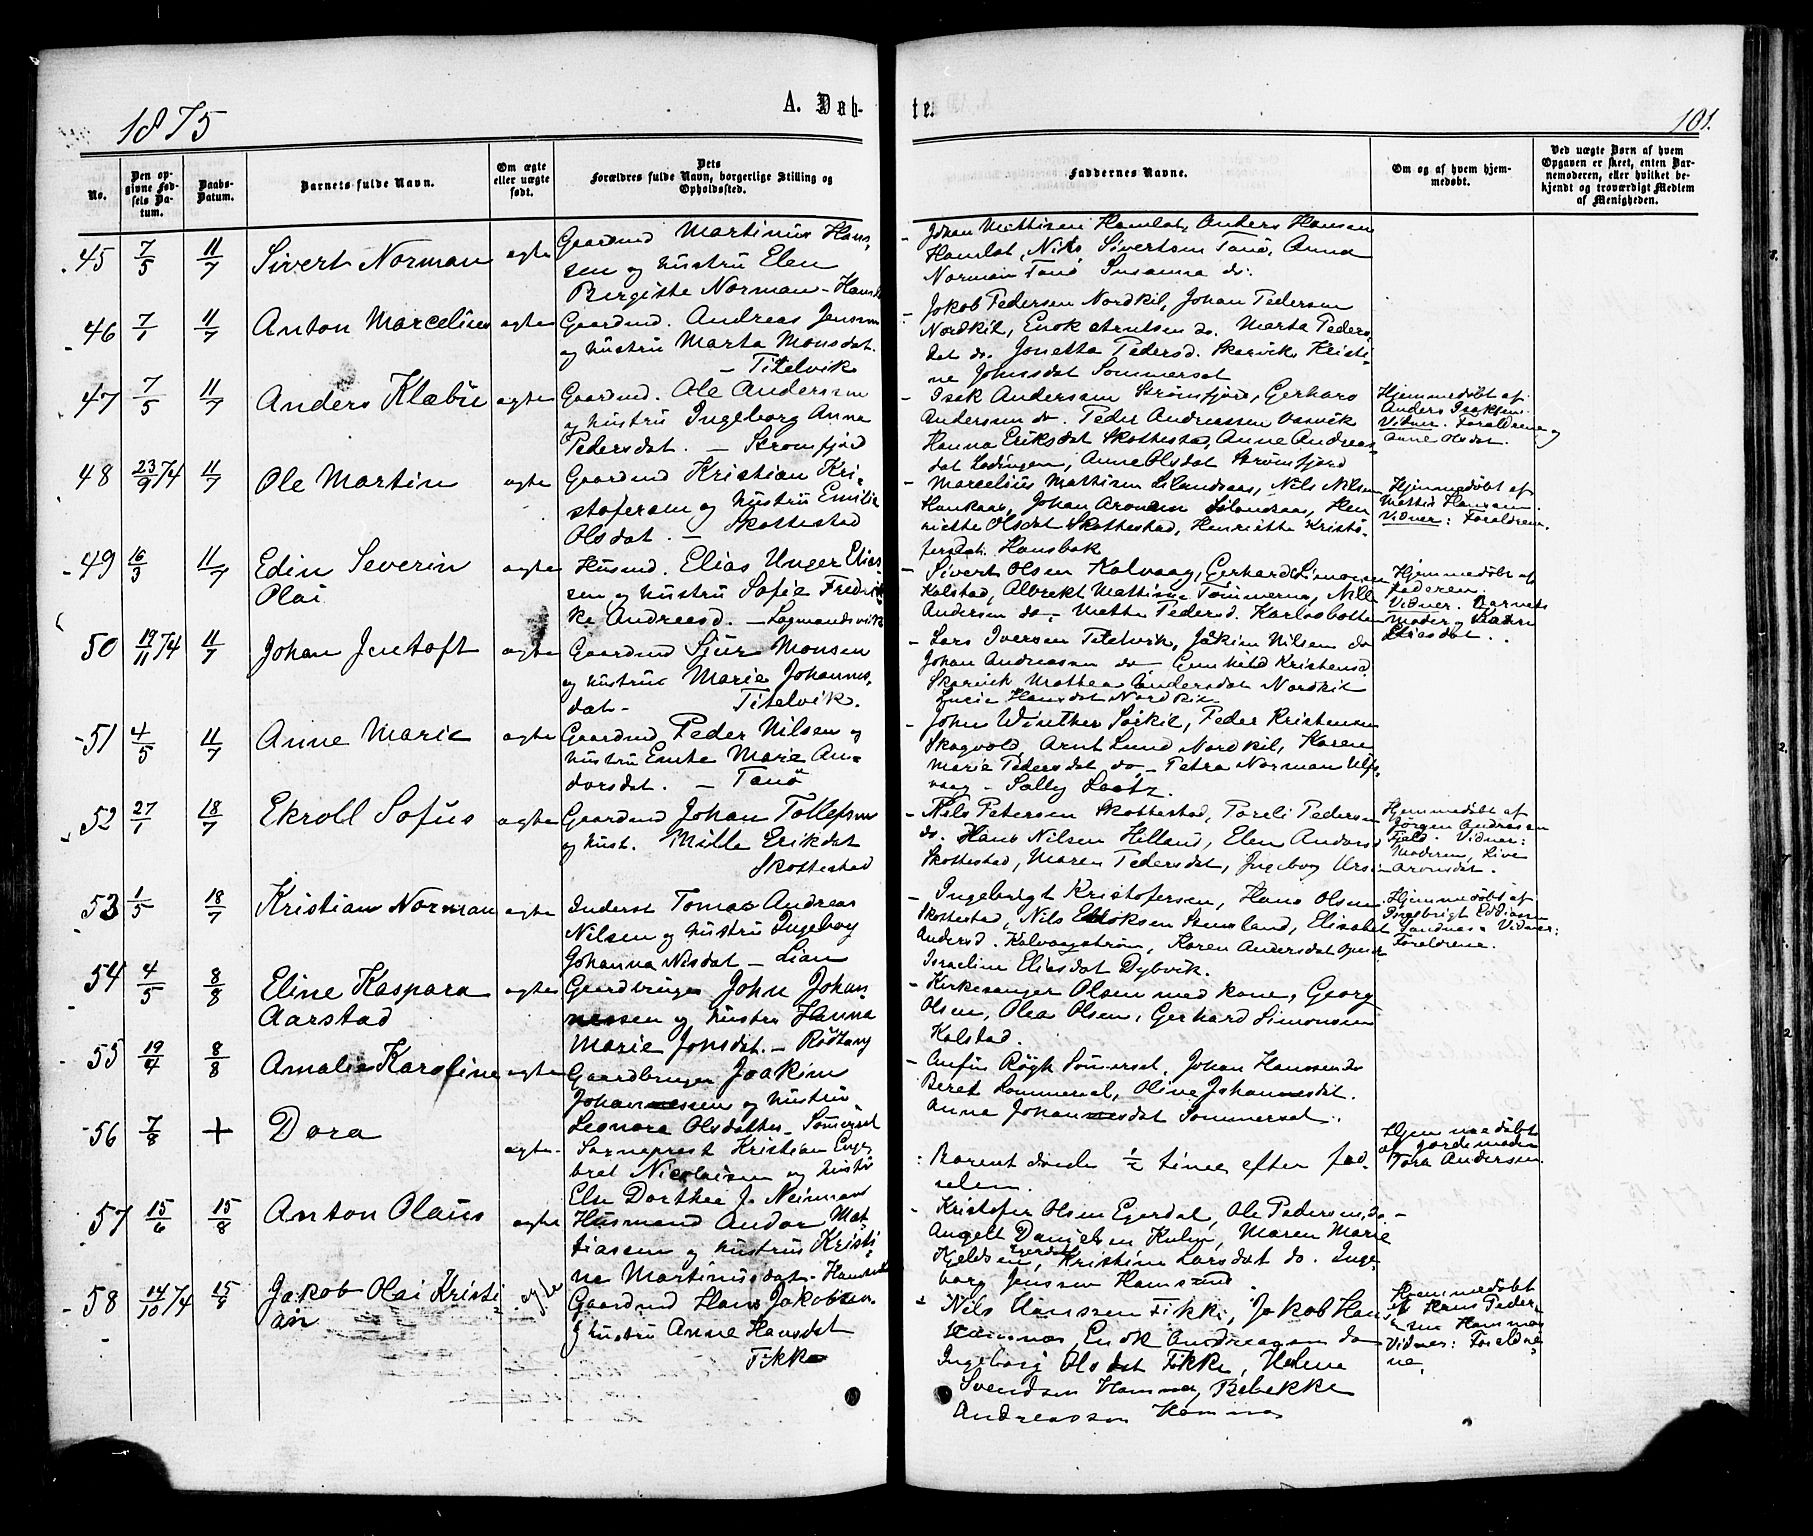 1875
A. Døb-
te.
101.
No.
Den op-
givne Fød-
sels Da-
tum.
Daabs-
Datum.
Barnets fulde Navn.
Om ægte
eller uægte
født.
Dets
Forældres fulde Navn, borgerlige Stilling og
Opholdssted.
Faddernes Navne.
Om og af hvem hjem-
medøbt.
Ved uægte Børn af hvem
Opgaven er skeet, enten Bar-
nemoderen, eller hvilket be-
kjendt og troværdigt Medlem
af Menigheden.
45 7/5 11/7 Sivert Norman ægte
Gaardmd Martinus Han-
sen og hustru Elen
Birgitte Norman - Hamst
Johan Mattisen Hamlot, Anders Hansen
Hamlot, Nils Sivertsen Tanø, Anna
Norman Tanø Susanna do.
46 7/1 11/7 Anton Marcelius ægte
Gaardmd. Andreas Jensen
og hustru Marta Monsdat.
- Titelvik
Jakob Pedersen Nordkil, Johan Pedersen
Nordkil, Enok Arntsen do. Marta Peders-
dat do. Jonetta Pedersd. Skarvik, Kristi-
ne Johnsdat Sommerset
47 7/5 11/7 Anders Klæbu ægte
Gaardmd. Ole Andersen
og hustru Ingeborg Anna
Pedersdat. - Strømfjord
- Isak Andersen Strømfjord, Gerhard
Andersen do. Peder Andreassen Vasvik
Hanna Eriksdat Skottestad, Anne Andreas-
dat Lødingen, Anne Olsdat Strømfjord
Hjemmedøbt af
Anders Isaksen.
Vidner. Forældrene og
Anne Olsdat.
48 23/9 74 11/7 Ole Martin ægte
Gaardmd Kristian Kri-
stofersen og hustru Emilie
Olsdat. - Skottestad
- Marcelius Mattisen Lilandsaas, Nils Nilsen
Haukaas, Johan Aronsen Lilandsaas, Hen-
riette Olsdat Skottestad, Henriette Kristo-
fersdat. Hansbak
Hjemmedøbt af
Mattis Hansen.
Vidner: Forældrene.
49 16/3 11/7 Edin Severin
Olai
ægte
Husmd. Elias Unger Elias-
sen og hustru Sofie Fredrik-
ke Andreasd. - Lagmandsvik
- Sivert Olsen Kalvaag, Gerhard Simonsen
Kolstad, Albrekt Mattisen Tømmernes, Nils
Andersen do, Mette Pedersd. Karlsbotten
Hjemmedøbt af
Faderen.
Vidner. Barnets
Moder og Karen
Eliasdat.
50 19/11 74 11/7 Johan Jentoft ægte
Gaardmd Sjur Monsen
og hustru Marie Johannes-
dat - Titelvik.
- Lars Iversen Titelvik, Joakim Nilsen do
Johan Andreassen do Gunhild Kristensd
Skarvik Mathea Andersdat Nordkil
Lucie Hansdat Nordkil
51 4/5 11/7 Anne Marie ægte
Gaardmd Peder Nilsen og
hustru Emte Marie An-
dorsdat. - Tanø
- John Winther Sørkil, Peder Kristensen
Skogvold, Arnt Lund Nordkil, Karen
Marie Pedersdat do, - Petra Norman Ulfs-
vaag - Sally Lootz.
52 27/1 18/7 Ekroll Sofus ægte
Gaardmd Johan Tollefsen
og hust. Mille Eriksdat
Skottestad
- Nils Petersen Skottestad, Toreli Pedersen
do. Hans Nilsen Hilland, Elen Andersd
Skottestad, Maren Pedersdat, Ingeborg
Hjemmedøbt af
Jørgen Andreasen
Fjeld. Vidner:
Moderen, Live
Aronsdat.
53 1/5 18/7 Kristian Norman ægte
Inderst Tomas Andreas
Nilsen og hustru Ingeborg
Johanna Nilsdat - Lian
- Ingebrigt Kristofersen, Hans Olsen
Skottestad, Nils Enoksen Stensland, Elisabet
Andersd. Kalvaagstrøm, Karen Andersdat
Israeline Eliasdat Dybvik.
Hjemmedøbt af
Ingebrigt Eddiassen
Sandnes. Vidner:
Forældrene.
54 4/5 8/8 Eline Kaspara
Aarstad
ægte
Gaardbruger John Johan-
nessen og hustru Hanna
Marie Jonsdat. - Rødtang
- Kirkesanger Olsen med kone, Georg
Olsen, Olea Olsen, Gerhard Simonsen
Kolstad.
55 19/4 8/8 Amalie Karoline ægte
Gaardbruger Joakim
Johannessen og hustru
Leonora Olsdatter - Sømerset
- Anfin Røgh Sømerset, Johan Hansen do
Beret Sommerset, Oline Johannesdat.
Anna Johannesdat Sommerset.
56 7/8 + Dora ægte.
Sogneprest Kristian Enge-
bret Nicolaisen og hustru
Else Dorthea J. Neiman
Barnet døde 1/2 time efter fød-
selen.
Hjemmedøbt
af jordemoder
Tora Andersen.
57 15/6 15/8 Anton Olaus ægte
Husmand Andor Mat-
tiassen og hustru Kristi-
ne Martinusdat - Hamsund
- Kristofer Olsen Egerdal, Ole Pedersen do -
Angelt Danielsen Kulvi, Maren Marie
Kjeldsen Egerdal, Kristine Larsdat do. Inge-
borg Jenssen Hamsund.
58 14/10 74 15/8 Jakob Olai Kristi-
an
ægte
Gaardmd Hans Jakobsen
og hustru Anne Hansdat
Fikke
- Nils Hanssen Fikke, Jakob Hans
Hamnes, Enok Andreassen do
Ingeborg Olsdat Fikke, Helene
Svendsen Hamnes, Bibekke
Andreassen Hamnes
Hjemmedøbt
af Hans Peder-
sen Hamnes
Vidner: Forældre-
ne.